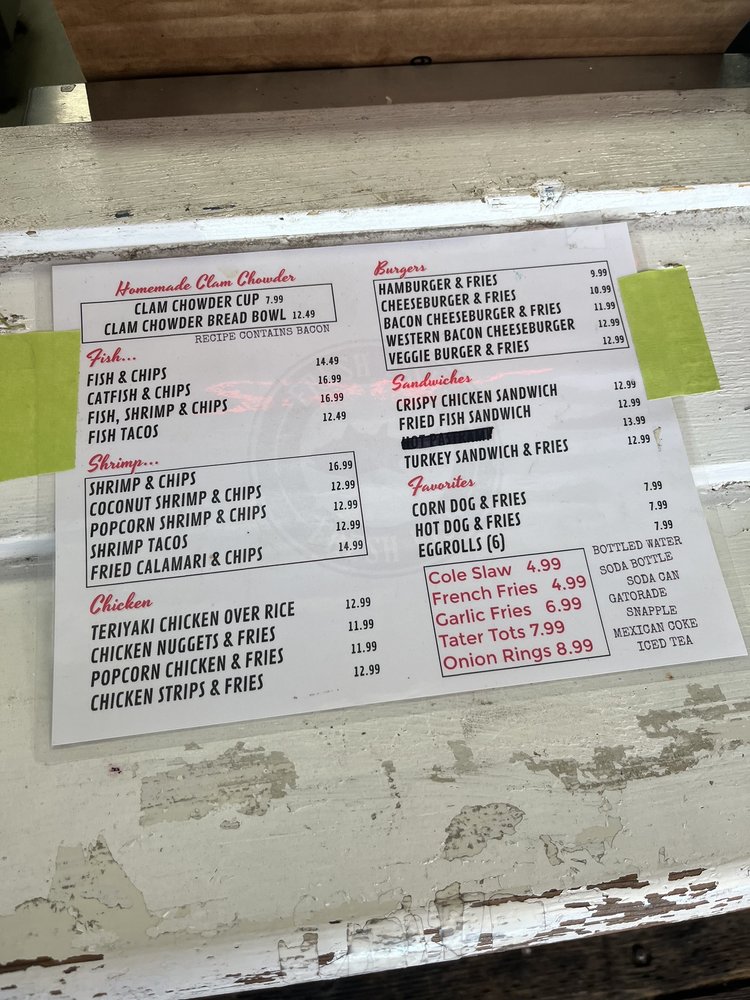 Homemade Clam Chowder
CLAM CHOWDER CUP 7.99
CLAM CHOWDER BREAD BOWL 12.49
RECIPE CONTAINS BACON
Fish...
FISH & CHIPS 14.49
CATFISH & CHIPS 16.99
FISH, SHRIMP & CHIPS 16.99
FISH TACOS 12.49
Shrimp...
SHRIMP & CHIPS 16.99
COCONUT SHRIMP & CHIPS 12.99
POPCORN SHRIMP & CHIPS 12.99
SHRIMP TACOS 12.99
FRIED CALAMARI & CHIPS 14.99
Chicken
TERIYAKI CHICKEN OVER RICE 12.99
CHICKEN NUGGETS & FRIES 11.99
POPCORN CHICKEN & FRIES 11.99
CHICKEN STRIPS & FRIES 12.99
Burgers
HAMBURGER & FRIES 9.99
CHEESEBURGER & FRIES 10.99
BACON CHEESEBURGER & FRIES 11.99
WESTERN BACON CHEESEBURGER 12.99
VEGGIE BURGER & FRIES 12.99
Sandwiches
CRISPY CHICKEN SANDWICH 12.99
FRIED FISH SANDWICH 12.99
13.99
TURKEY SANDWICH & FRIES 12.99
Favorites
CORN DOG & FRIES 7.99
HOT DOG & FRIES 7.99
EGGROLLS (6) 7.99
Cole Slaw 4.99
French Fries 4.99
Garlic Fries 6.99
Tater Tots 7.99
Onion Rings 8.99
BOTTLED WATER
SODA BOTTLE
SODA CAN
GATORADE
SNAPPLE
MEXICAN COKE
ICED TEA